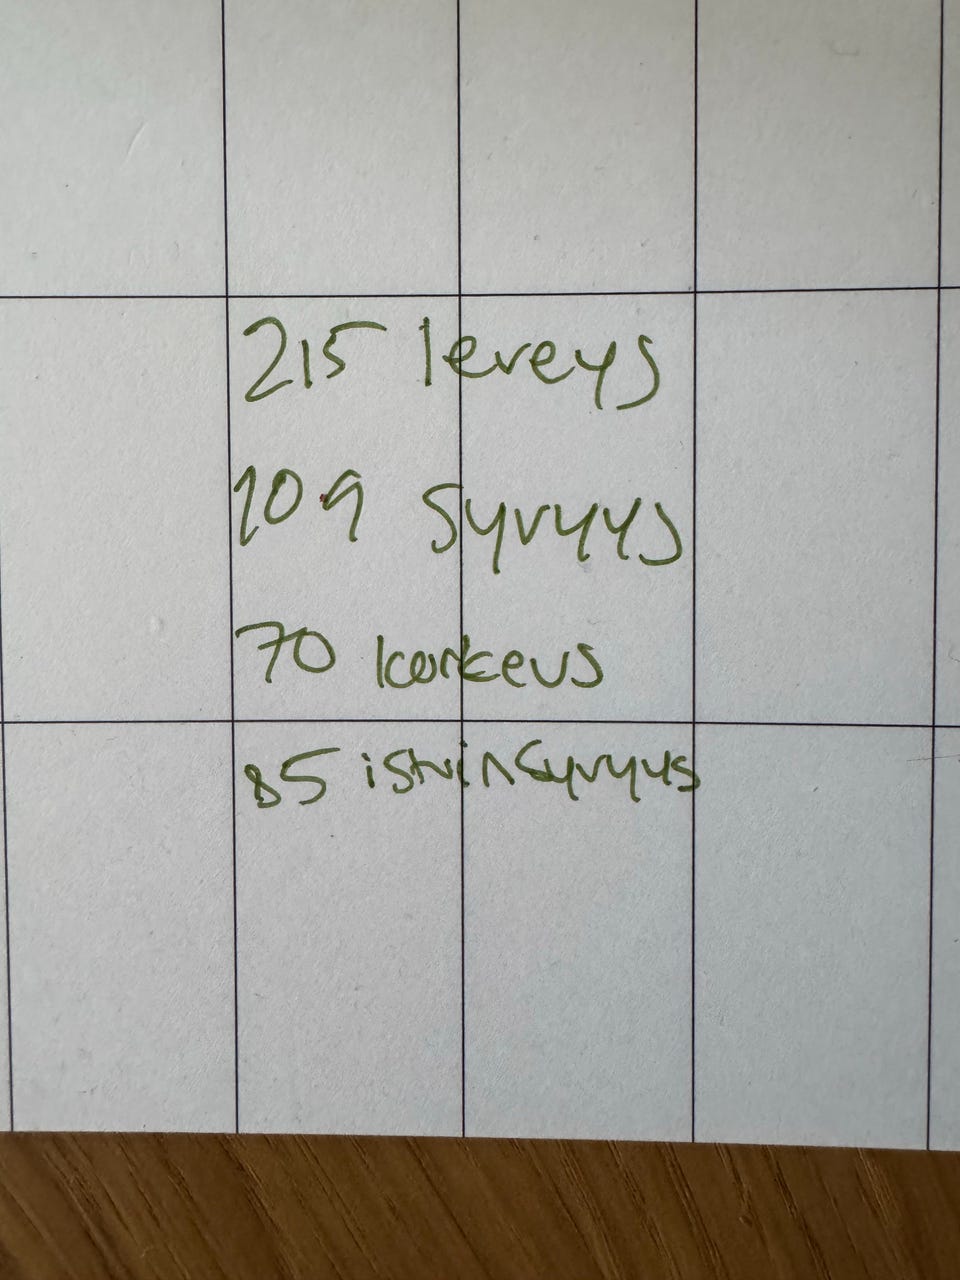 215 leveys
109 Syvyys
70 korkeus
85 istuinsyvyys